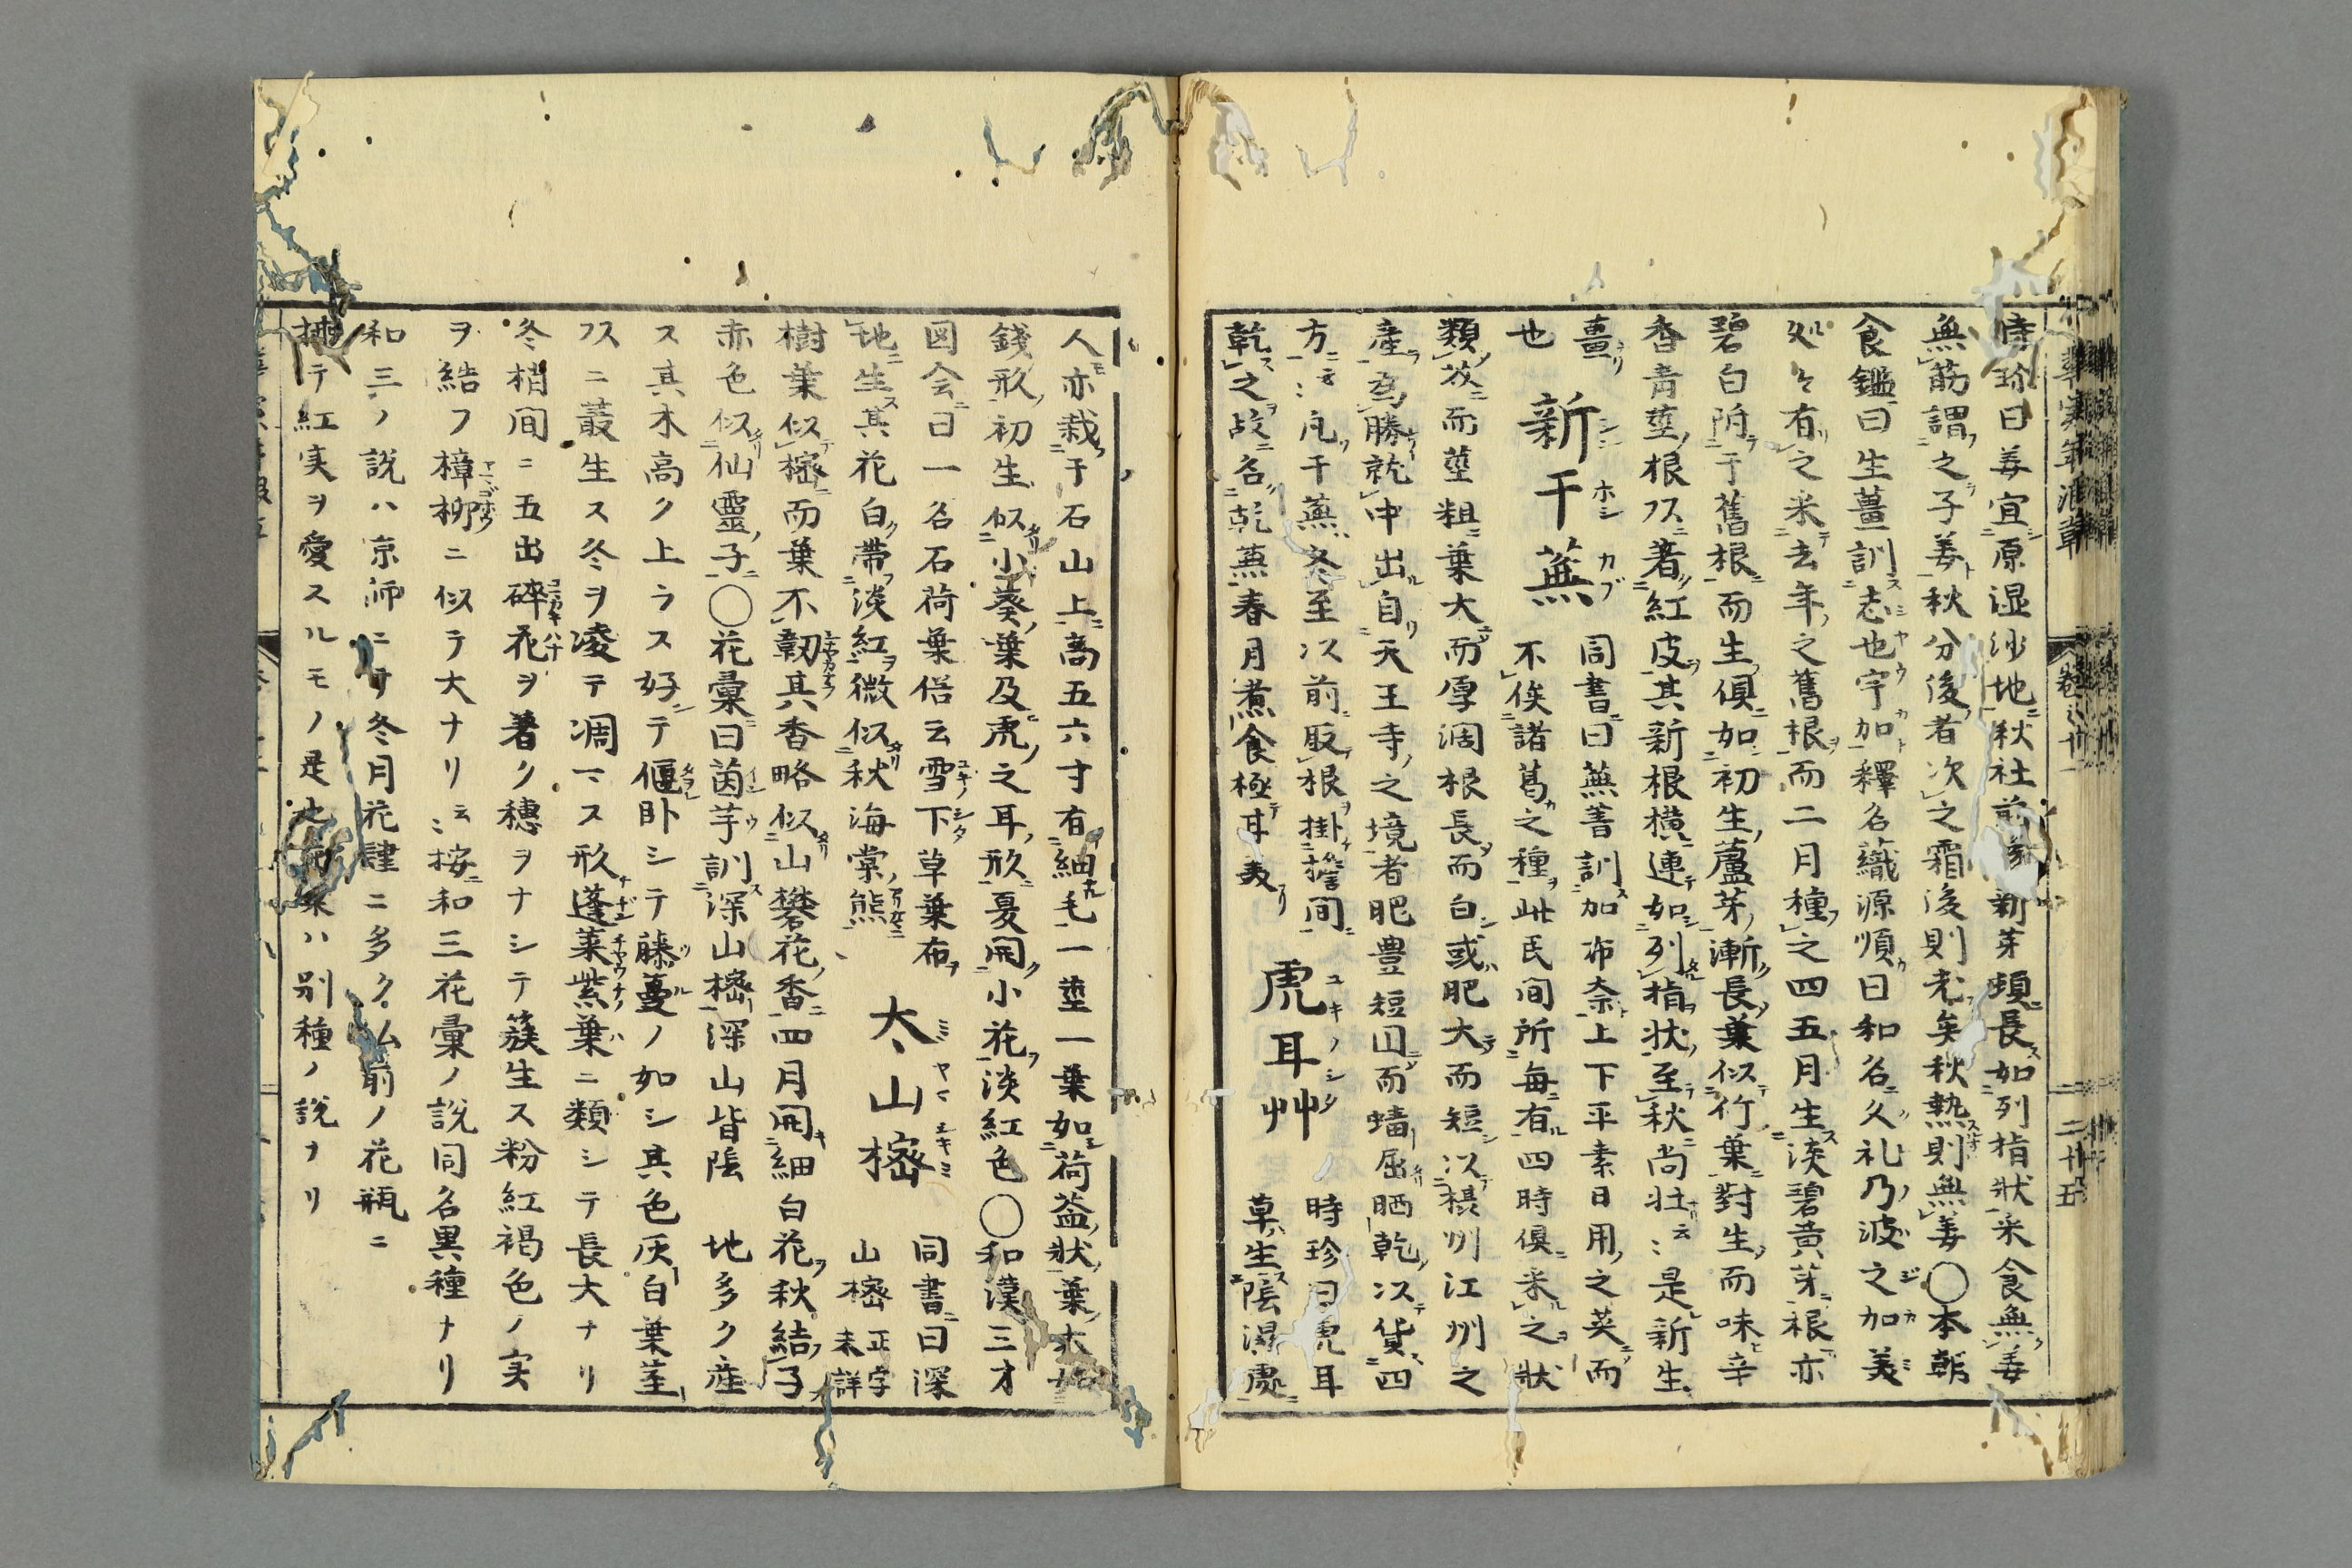 時珍曰姜宜原湿沙地秋社前後新芽頓長如列指狀采食無姜
無筋謂之子姜秋分後者次之霜後則老矣秋熱則無姜〇本朝
食鑑曰生薑訓志也宇加釋名蘵源順曰和名久礼乃波之加美
処々有之采去年之舊根而二月種之四五月生淡碧黄芽根亦
碧白附于舊根而生俱如初生蘆芽漸長葉似竹葉對生而味辛
香青莖根以著紅皮其新根横連如列指狀至秋尚壮云々是新生
薑也
新干蕪
同書曰蕪菁訓加布奈上下平素日用之英而
不俟諸葛之種此民間所毎有四時俱采之狀
類芥而莖粗葉大而厚濶根長而白或肥大而短以摂州江州之
産為勝就中出自天王寺之境者肥豊短円而蟠屈晒乾以貨四
方云々凡干蕪冬至以前取根掛檐間
乾之故名乾蕪春月煮食極耳美
虎耳艸
時珍曰虎耳
草生陰濕處
人亦栽于石山上高五六寸有細毛一莖一葉如荷蓋狀葉大如
錢形初生似小葵葉及虎之耳形夏開小花淡紅色〇和漢三才
図会曰一名石荷葉俗云雪下草葉布
地生其花白帯淡紅微似秋海棠熊
太山樒
同書曰深
山樒正字未詳
樹葉似樒而葉不韌其香略似山礬花香四月開細白花秋結子
赤色似仙靈子〇花彙曰茵芋訓深山樒深山皆陰地多ク産
ス其木高ク上ラス好テ偃卧シテ藤蔓ノ如シ其色灰白葉茎
以ニ叢生ス冬ヲ凌テ凋マス形蓬莱紫葉ニ類シテ長大ナリ
冬梢間ニ五出碎花ヲ著ク穗ヲナシテ簇生ス粉紅褐色ノ実
ヲ結フ樟柳ニ似テ大ナリ云々按和三花彙ノ説同名異種ナリ
和三ノ説ハ京師ニサ冬月花肆ニ多ク仏前ノ花瓶ニ
挿テ紅実ヲ愛スルモノ是也花彙ハ別種ノ説ナリ